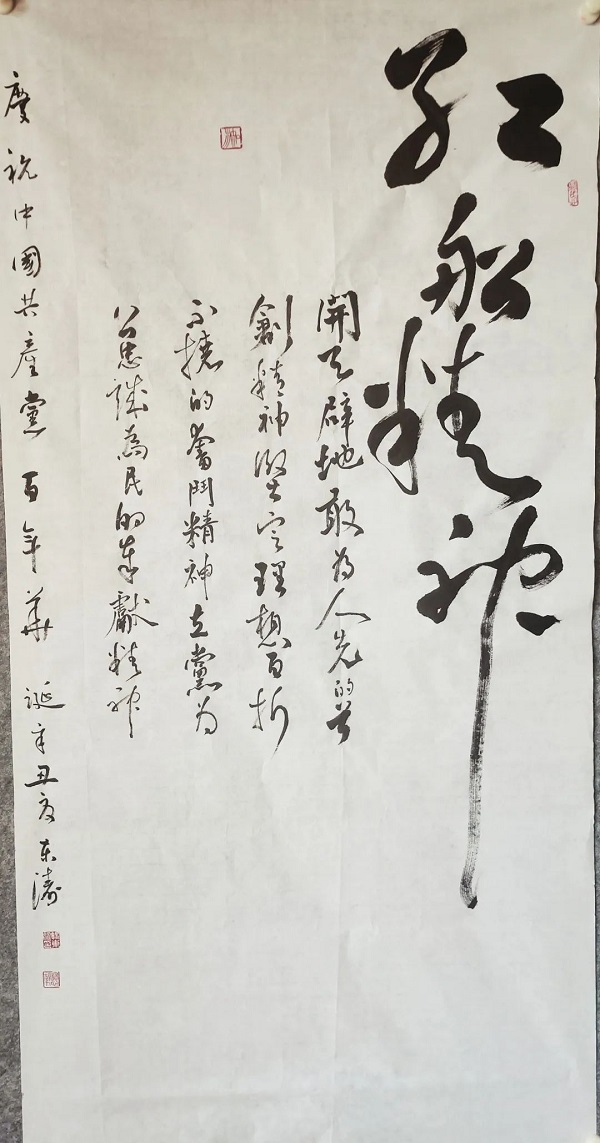 红船精神
開天辟地敢為人先的首
創精神堅定理想百折
不撓的奮鬥精神立黨為
公忠誠為民的奉獻精神
慶祝中國共產黨百年華誕辛丑夏東濤